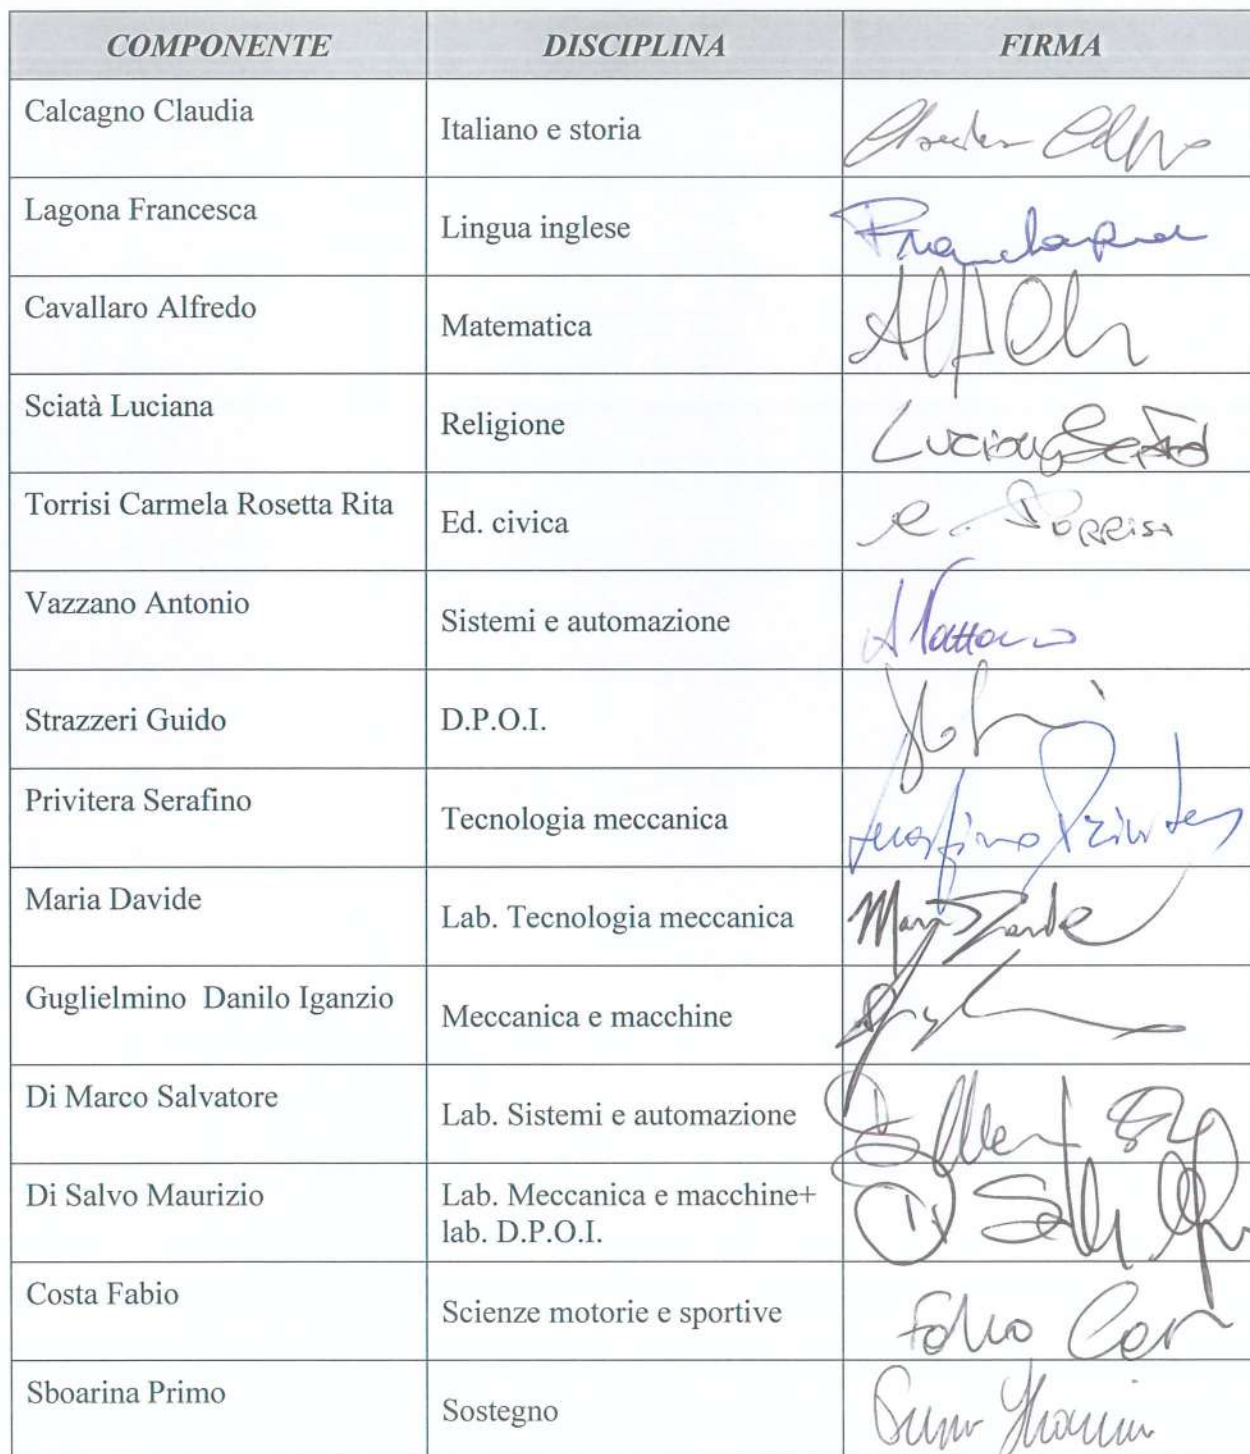 COMPONENTE DISCIPLINA FIRMA
Calcagno Claudia Italiano e storia
Lagona Francesca Lingua inglese
Cavallaro Alfredo Matematica
Sciatà Luciana Religione Luciana Sciatà
Torrisi Carmela Rosetta Rita Ed. civica C. Torrisi
Vazzano Antonio Sistemi e automazione
Strazzeri Guido D.P.O.I.
Privitera Serafino Tecnologia meccanica Serafino Privitera
Maria Davide Lab. Tecnologia meccanica Maria Davide
Guglielmino Danilo Iganzio Meccanica e macchine
Di Marco Salvatore Lab. Sistemi e automazione
Di Salvo Maurizio Lab. Meccanica e macchine+
lab. D.P.O.I.
Costa Fabio Scienze motorie e sportive Fabio
Sboarina Primo Sostegno